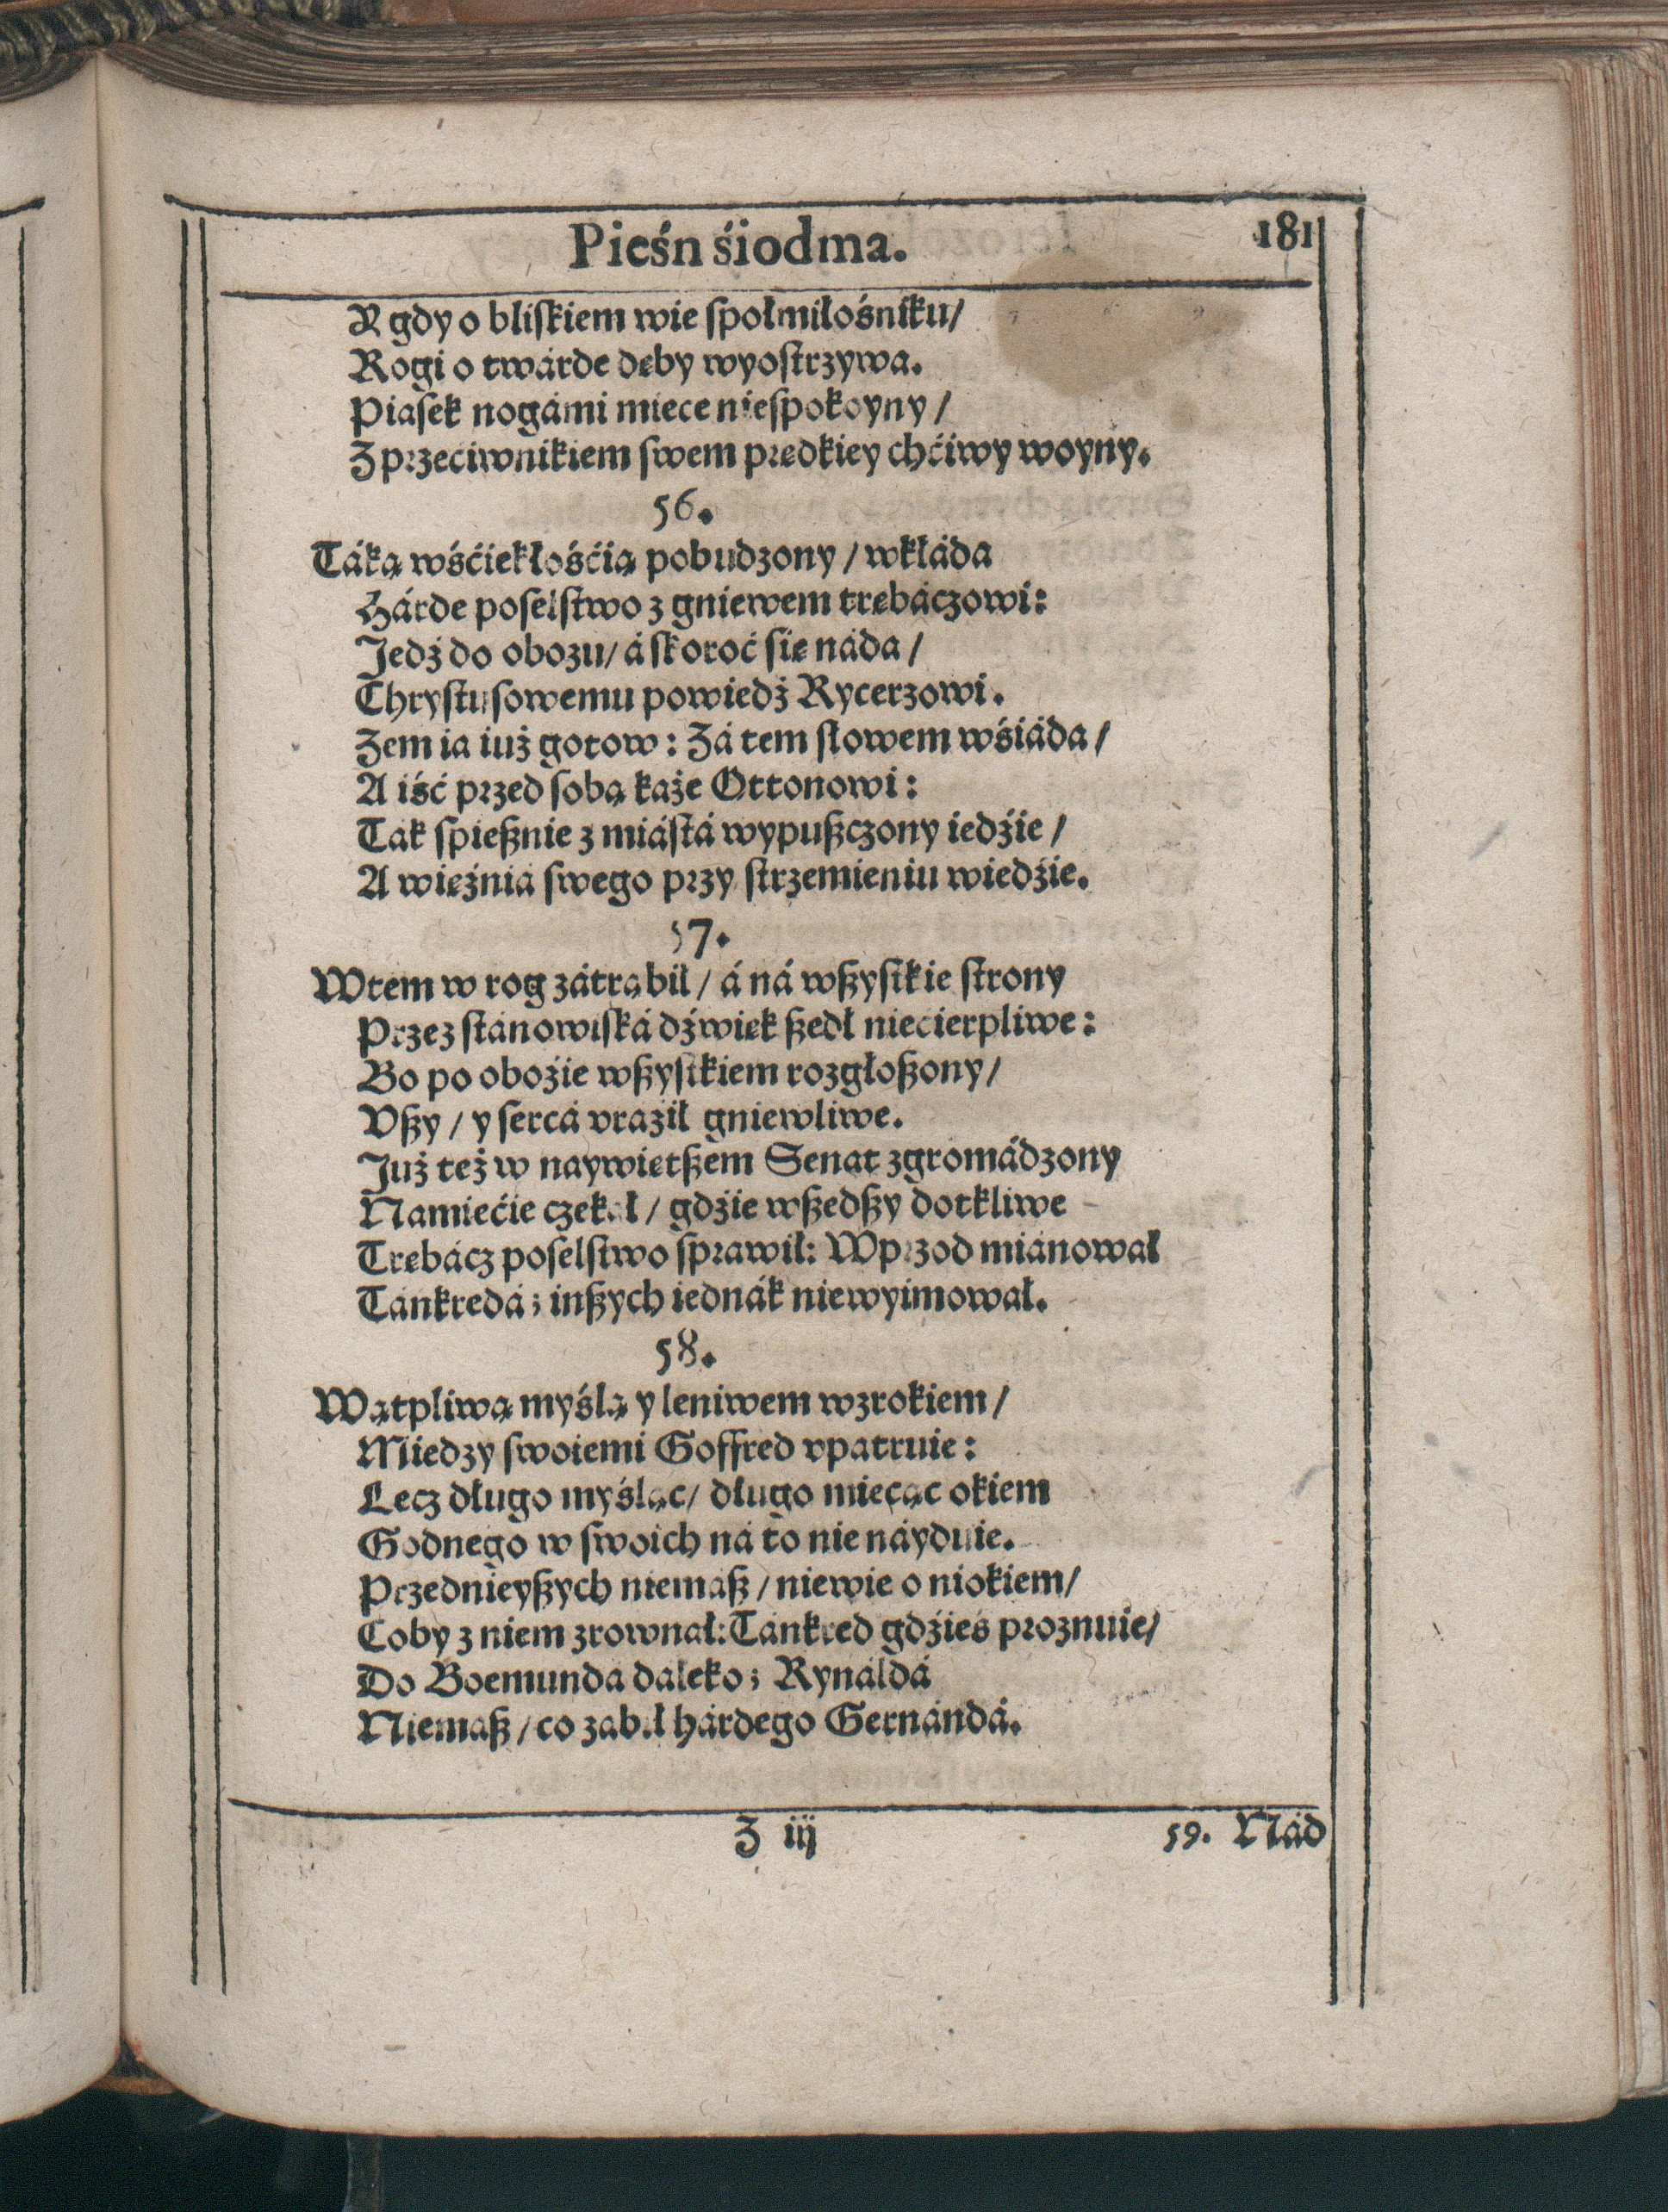 Pieśń śiodma.
181
Y gdy o bliſkiem wie ſpołmiłośniku/
Rogi o twárde dęby wyoſtrzywa.
Piaſek nogámi miece nieſpokoyny/
Z przeciwnikiem ſwem prędkiey chćiwy woyny.
56.
Táką wśćiekłośćią pobudzony/ wkłáda
Hárde poſelſtwo z gniewem trębáczowi:
Jedź do obozu/ á ſkoroć ſię náda/
Chryſtuſowemu powiedź Rycerzowi.
Zem ia iuż gotow: Zá tem ſłowem wśiáda/
A iść przed ſobą każe Ottonowi:
Tak ſpieſznie z miáſtá wypuſzczony iedźie/
A więźniá ſwego przy ſtrzemieniu wiedźie.
57.
Wtem w rog zátrąbił/ á ná wſzyſtkie ſtrony
Przez ſtánowiſká dźwięk ſzedł niecierpliwe:
Bo po oboźie wſzyſtkiem rozgłoſzony/
Vſzy/ y ſercá vraźił gniewliwe.
Już też w naywiętſzem Senat zgromádzony
Namiećie czekał/ gdźie wſzedſzy dotkliwe
Trębácz poſelſtwo ſprawił: Wprzod miánował
Tánkredá; inſzych iednák niewyimował.
58.
Wątpliwą myślą y leniwem wzrokiem/
Miedzy ſwoiemi Goffred vpatruie:
Lecz długo myśląc/ długo miecąc okiem
Godnego w ſwoich ná to nie náyduie.
Przednieyſzych niemaſz/ niewie o niokiem/
Coby z niem zrownał: Tánkred gdźieś proznuie/
Do Boemunda daleko; Rynáldá
Niemaſz/ co zabił hárdego Gernándá.
Z iij
59. Nád